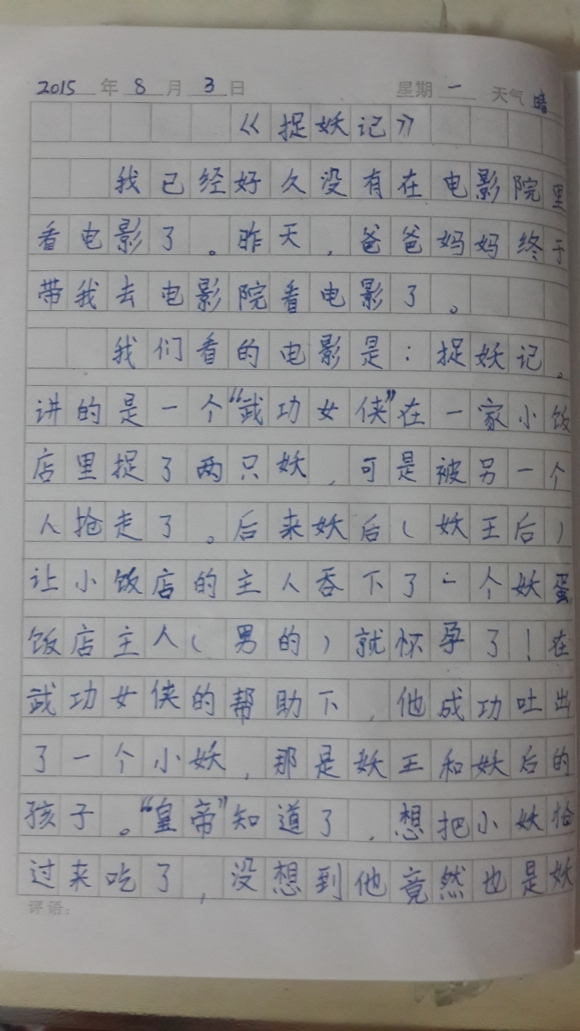 2015年8月3日 星期一 天气晴
《捉妖记》
我已经好久没有在电影院里
看电影了。昨天,爸爸妈妈终于
带我去电影院看电影了。
我们看的电影是:捉妖记。
讲的是一个“武功女侠”在一家小饭
店里捉了两只妖,可是被另一个
人抢走了。后来妖后(妖王后)
让小饭店的主人吞下了一个妖蛋
饭店主人(男的)就怀孕了!在
武功女侠的帮助下,他成功吐出
了一个小妖,那是妖王和妖后的
孩子。“皇帝”知道了,想把小妖抢
过来吃了,没想到他竟然也是妖
评语: